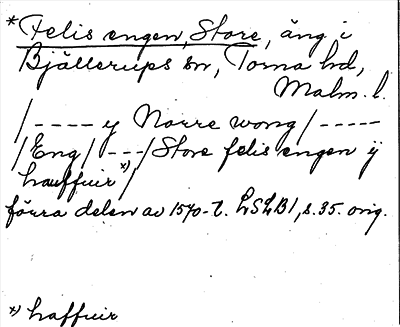 *Felis engen, Store, äng i
Bjällerups sn, Torna hd,
Malm. l.
/---- y Norre wong/-----
/Eng/ ---/Store felis engen ÿ
hauffuir *)/
förra delen av 1570-t. LSLB1, s. 35. orig.
*) haffuir